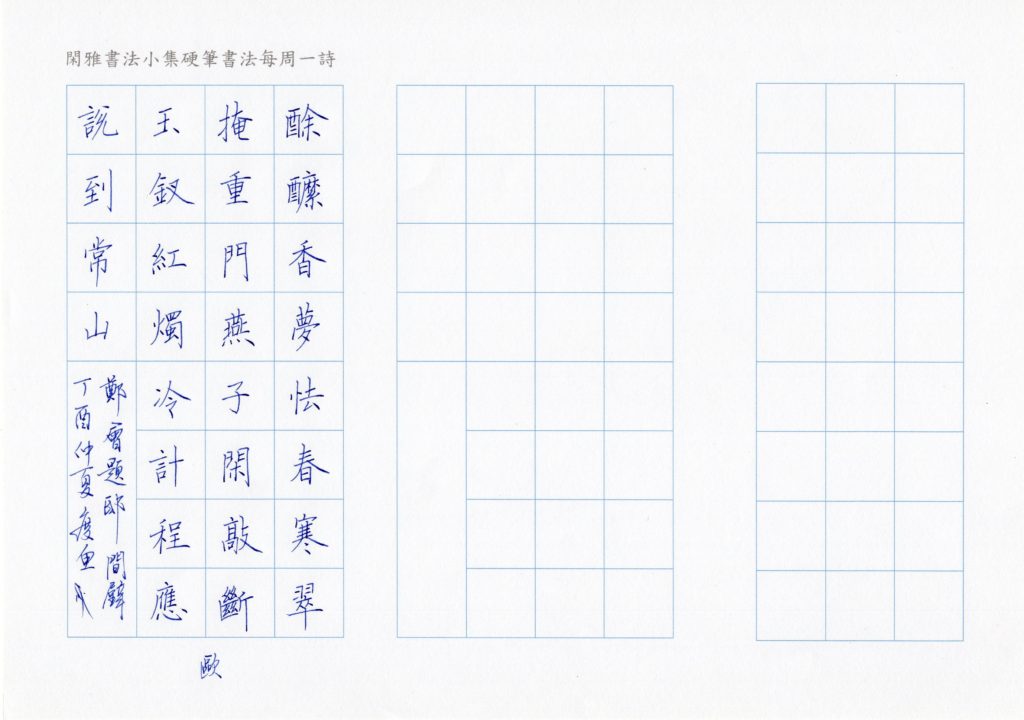 閑雅書法小集硬筆書法每周一詩
酴醾香夢怯春寒翠
掩重門燕子閑敲斷
玉釵紅燭冷計程應
說到常山
鄭會題邸間壁
丁酉仲夏瘦魚
歐